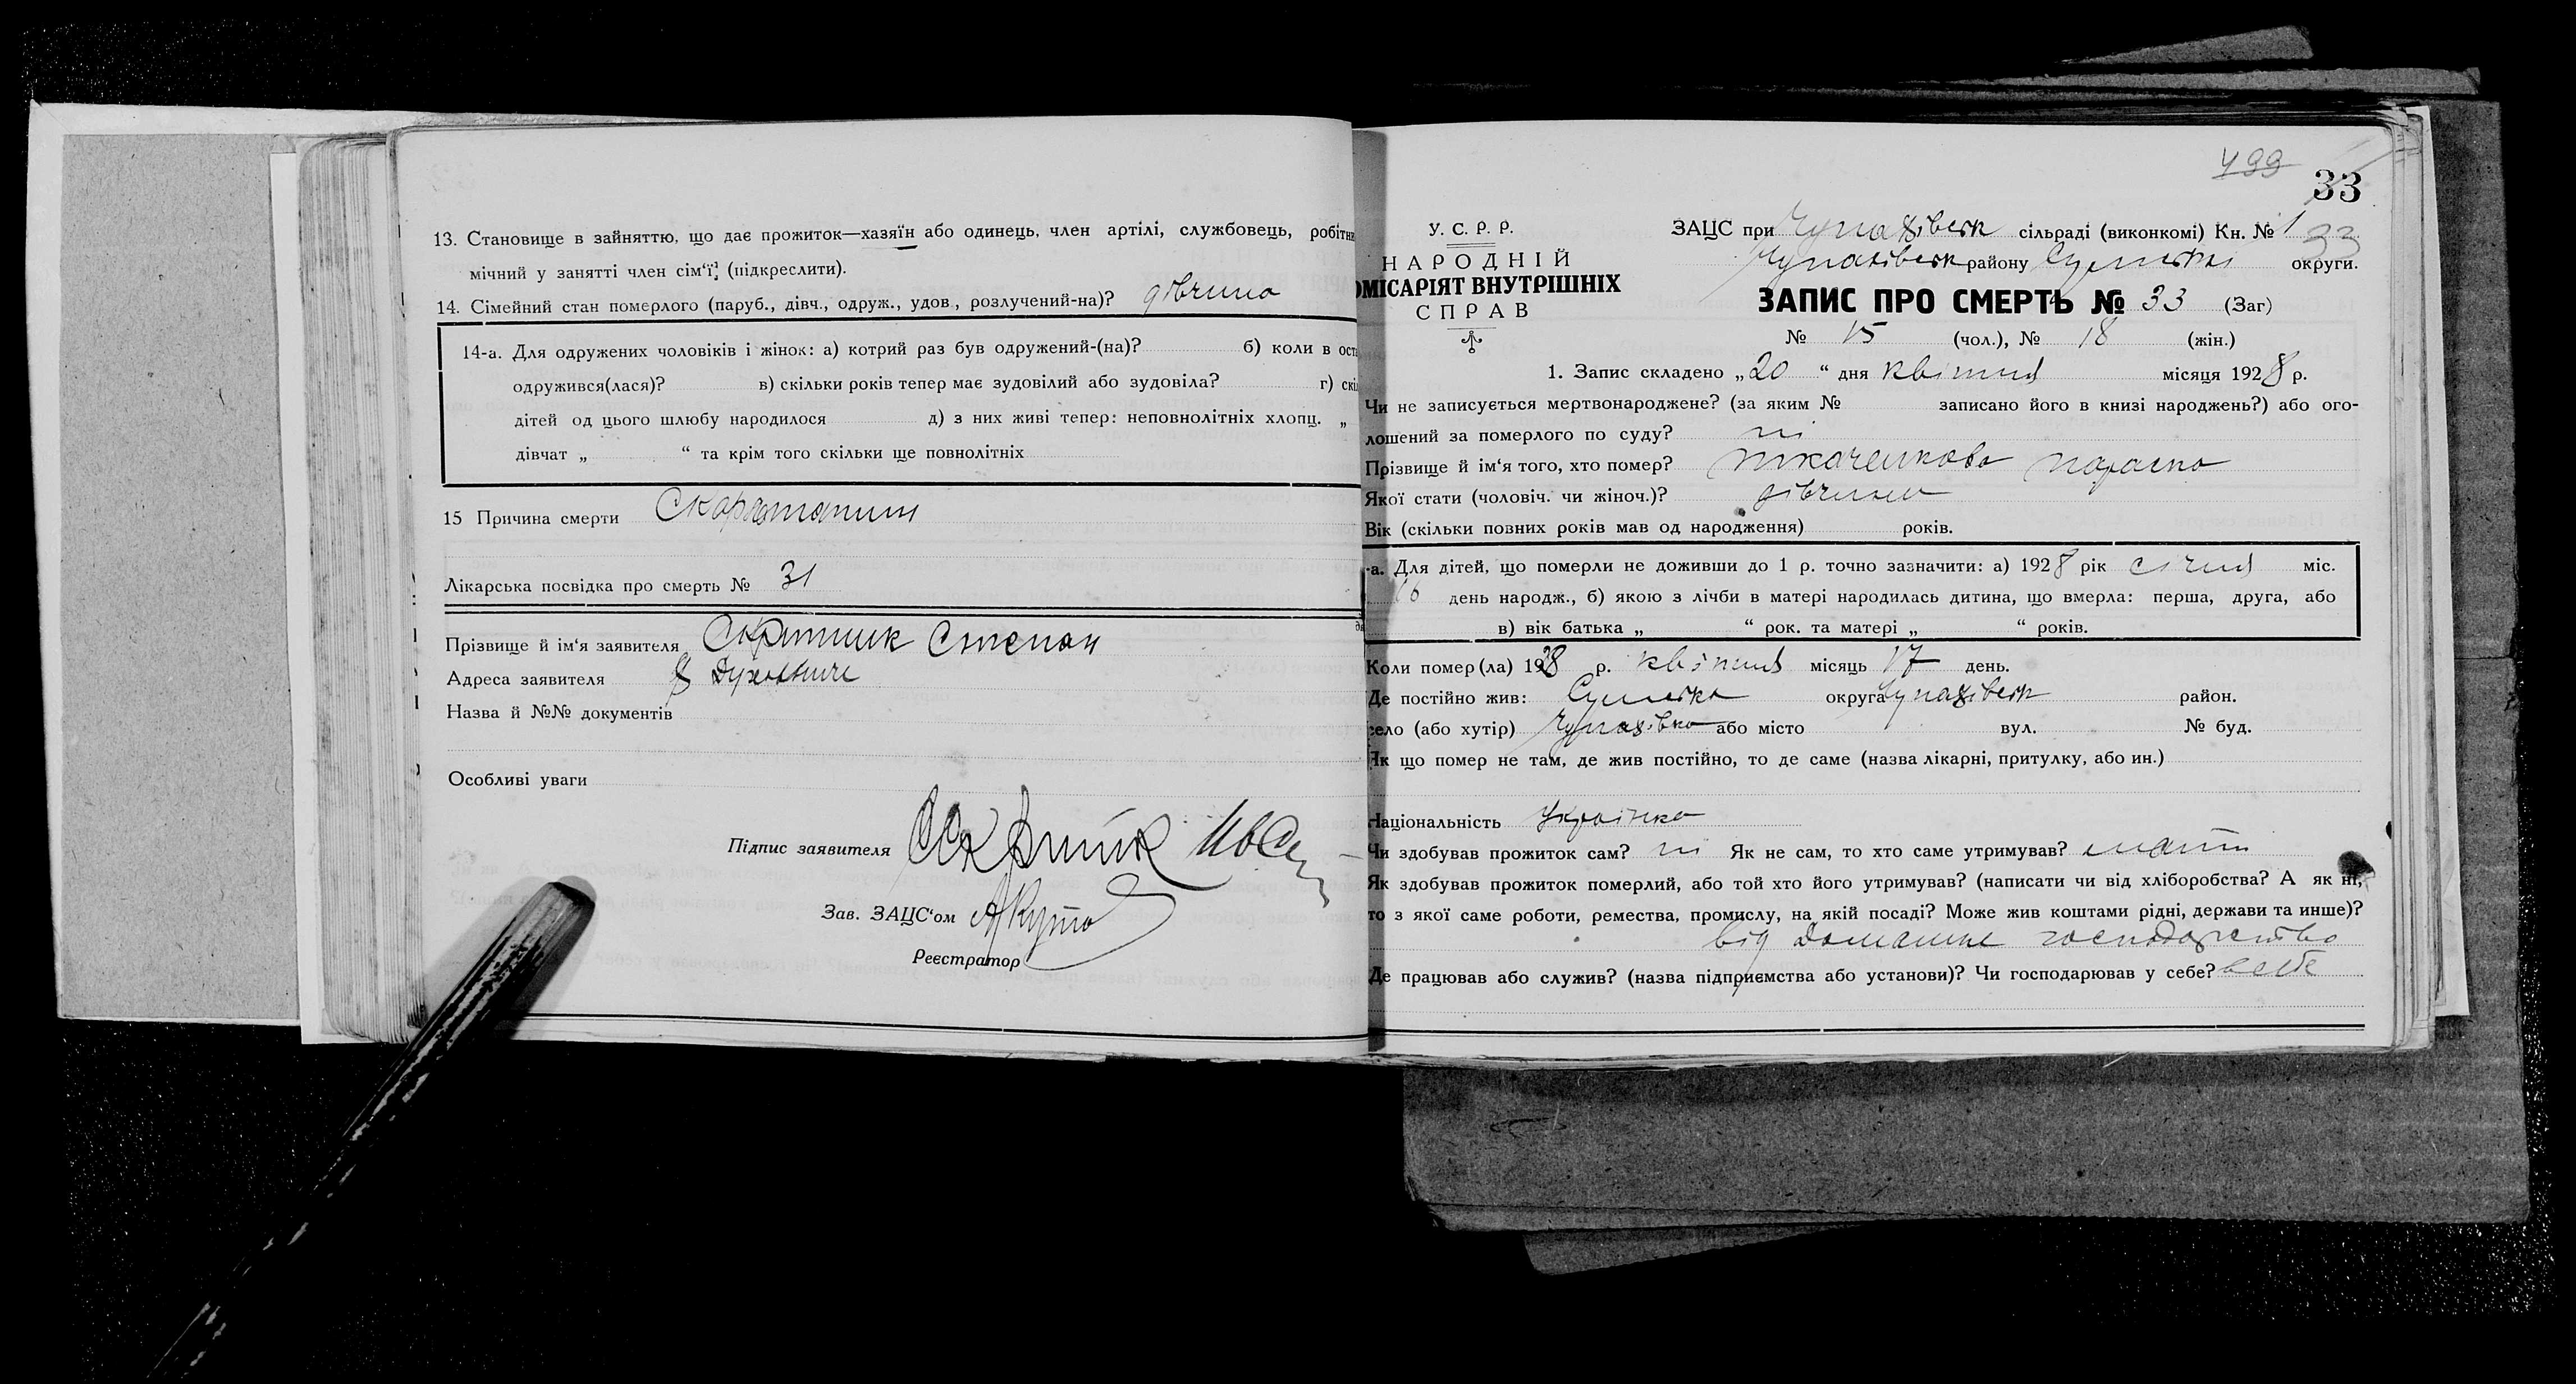 13. Становище в зайняттю, що дає прожиток—хазяїн або одинець, член артілі, службовець, робітни
мічний у занятті член сім'ї, (підкреслити).
14. Сімейний стан померлого (паруб., дівч., одруж., удов, розлучений-на)? дівчина
14-а. Для одружених чоловіків і жінок: а) котрий раз був одружений-(на)? б) коли в ост
одружився(лася)? в) скільки років тепер має зудовілий або зудовіла? г) скі
дітей од цього шлюбу народилося д) з них живі тепер: неповнолітніх хлопц. „
дівчат „ “ та крім того скільки ще повнолітніх
15 Причина смерти
Лікарська посвідка про смерть № 31
Прізвище й ім'я заявителя Степан
Адреса заявителя
Назва й №№ документів
Особливі уваги
Підпис заявителя
Зав. ЗАЦС'ом
Реєстратор
499
33
У. С. Р. Р.
НАРОДНІЙ
ОМІСАРІЯТ ВНУТРІШНІХ
СПРАВ
ЗАЦС при Чупахівськ сільраді (виконкомі) Кн. № 1
33
Чупахівськ району Сумської округи.
ЗАПИС ПРО СМЕРТЬ № 33 (Заг)
№ 15 (чол.), № 18 (жін.)
1. Запис складено „20“ дня квітня місяця 1928 р.
Чи не записується мертвонароджене? (за яким № записано його в книзі народжень?) або ого-
лошений за померлого по суду? ні
Прізвище й ім'я того, хто помер? Ткаченкова Параска
Якої стати (чоловіч. чи жіноч.)? дівчина
Вік (скільки повних років мав од народження) років.
-а. Для дітей, що померли не доживши до 1 р. точно зазначити: а) 1928 рік січня міс.
16 день народж., б) якою з лічби в матері народилась дитина, що вмерла: перша, друга, або
в) вік батька „ “ рок. та матері „ “ років.
Коли помер(ла) 1928 р. квітня місяць 17 день.
Де постійно жив: Сумська округа Чупахівськ район.
село (або хутір) Чупахівка або місто вул. № буд.
Як що помер не там, де жив постійно, то де саме (назва лікарні, притулку, або ин.)
Національність Українка
Чи здобував прожиток сам? ні Як не сам, то хто саме утримував? мати
Як здобував прожиток померлий, або той хто його утримував? (написати чи від хліборобства? А як ні,
то з якої саме роботи, ремества, промислу, на якій посаді? Може жив коштами рідні, держави та инше)?
від домашне господарство
Де працював або служив? (назва підприємства або установи)? Чи господарював у себе? в себе